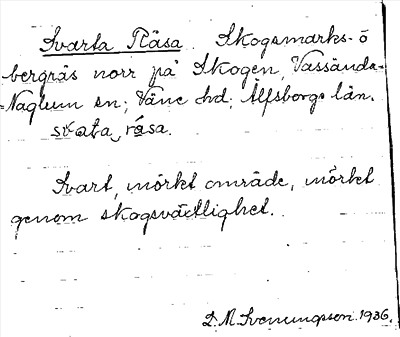 Svarta Råsa. Skogsmarks- o
bergrås norr på Skogen, Vassända-
-Naglum sn; Väne hd; Älfsborgs län.
svata, råsa.
Svart, mörkt område, mörkt
genom skogsväxtlighet.
D. M. Svenungsson. 1936.